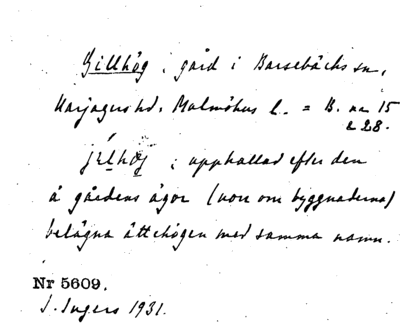 Gillhög : gård i Barsebäcks sn,
Harjagers hd, Malmöhus l. = B. na 15
& 28.
jɛ́lhöj : uppkallad efter den
å gårdens ägor (norr om byggnaderna)
belägna ättehögen med samma namn.
Nr 5609.
I. Ingers 1931.